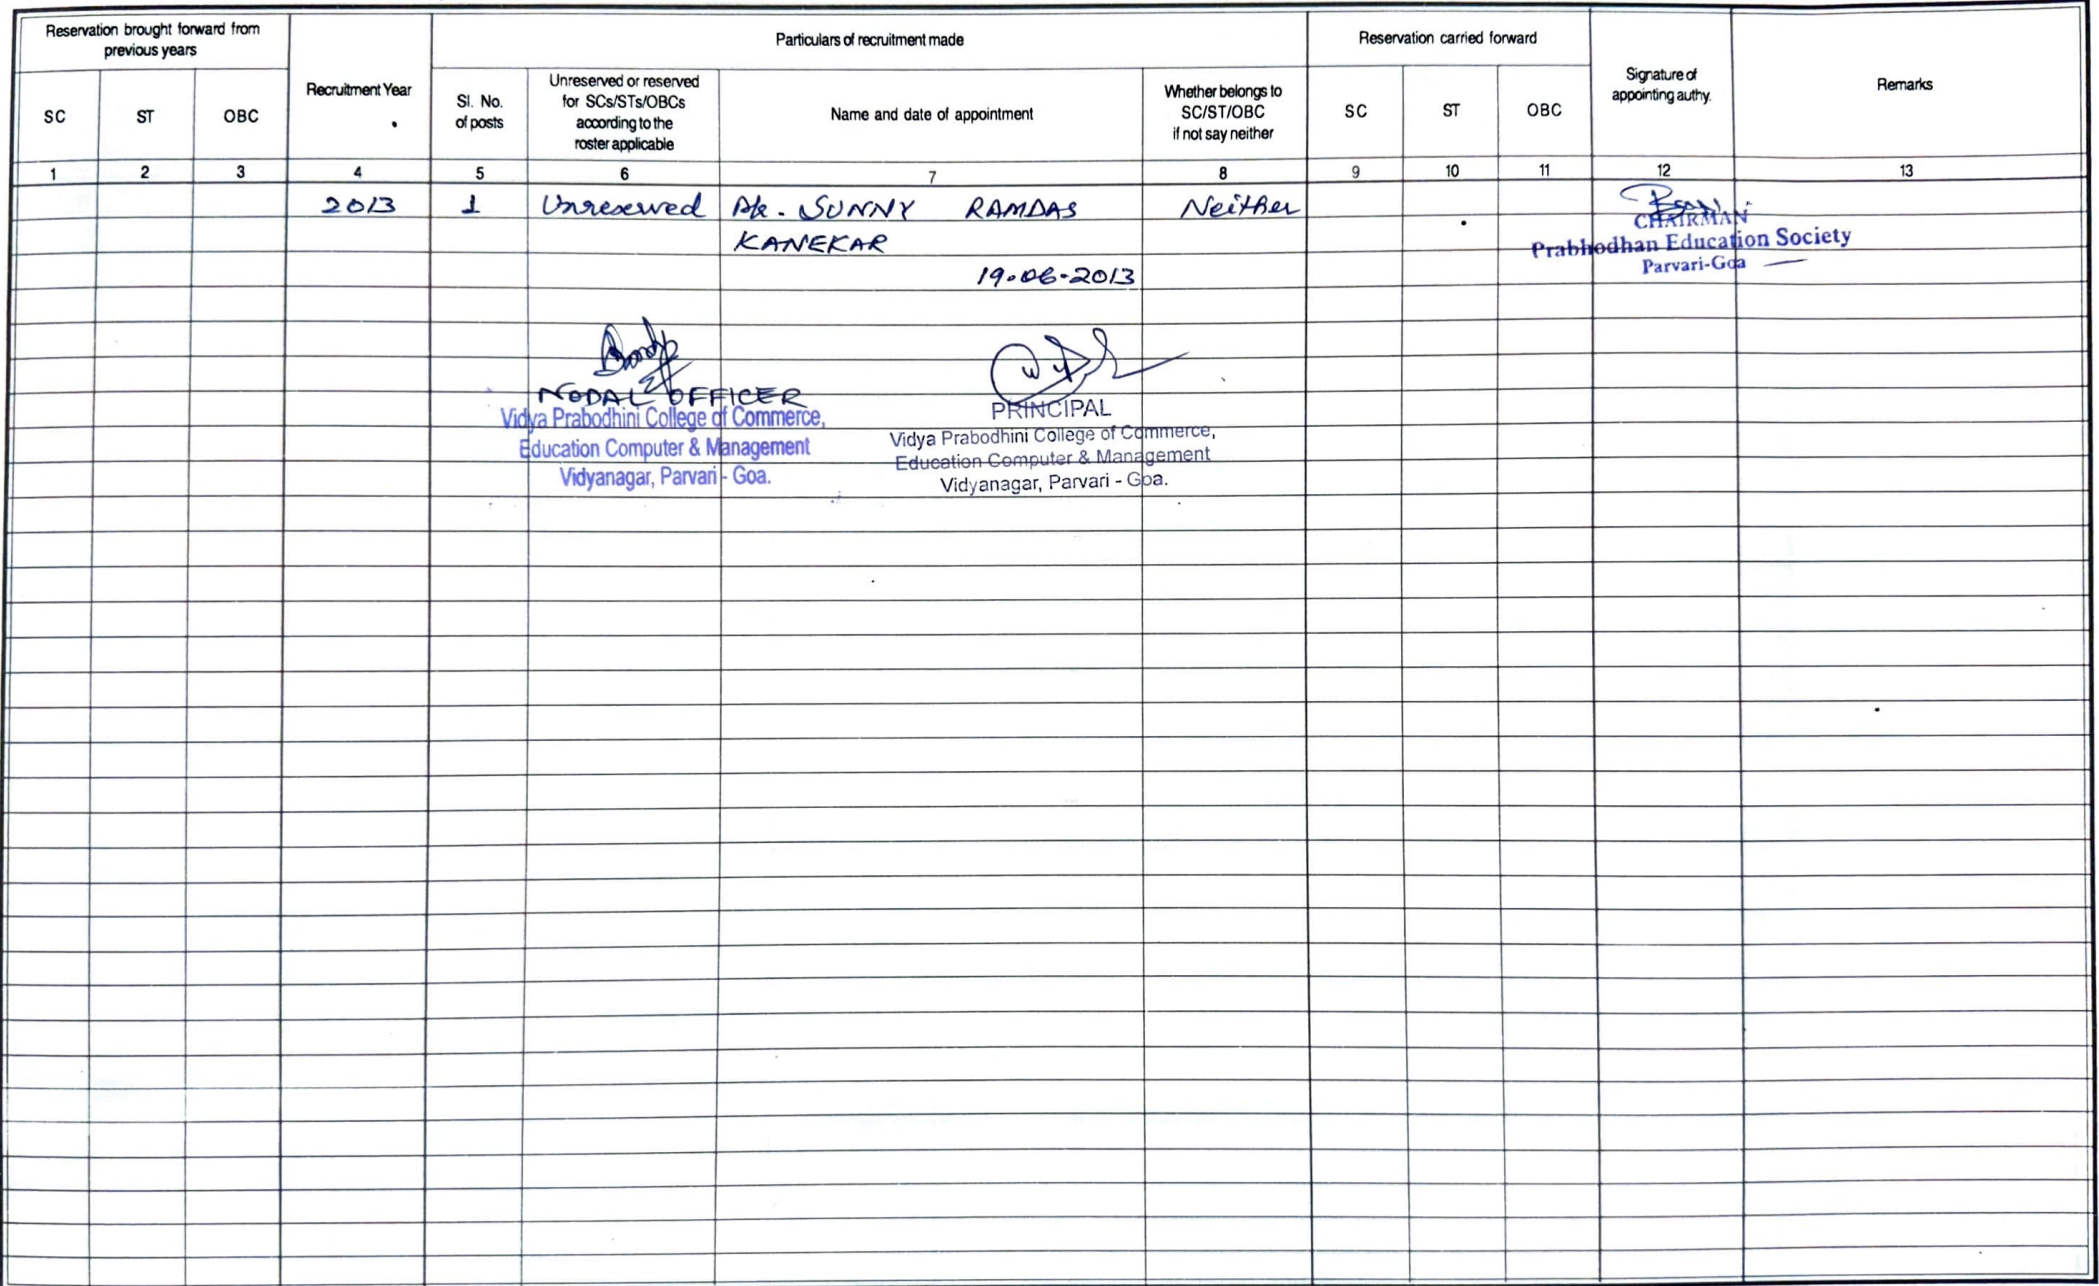 Reservation brought forward from
previous years
Recruitment Year
Particulars of recruitment made
Reservation carried forward
Signature of
appointing authy.
Remarks
SC
ST
OBC
Sl. No.
of posts
Unreserved or reserved
for SCs/STs/OBCs
according to the
roster applicable
Name and date of appointment
Whether belongs to
SC/ST/OBC
if not say neither
SC
ST
OBC
1 2 3 4 5 6 7 8 9 10 11 12 13
2013 1 Unreserved SUNNY RAMDAS Neither
KANEKAR
19-06-2013
CHAIRMAN
Prabhodhan Education Society
Parvari-Goa
NODAL OFFICER
Vidya Prabodhini College of Commerce,
Education Computer & Management
Vidyanagar, Parvari - Goa.
PRINCIPAL
Vidya Prabodhini College of Commerce,
Education Computer & Management
Vidyanagar, Parvari - Goa.